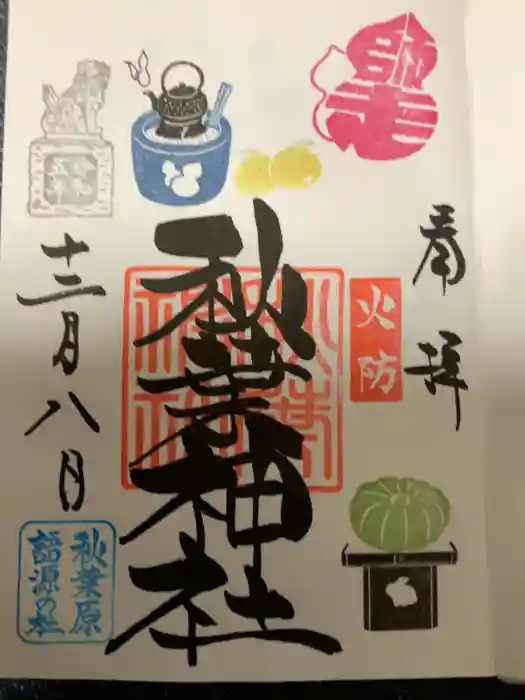 師走
奉拝
火防
秋葉神社
十二月八日
秋葉原
語源の社